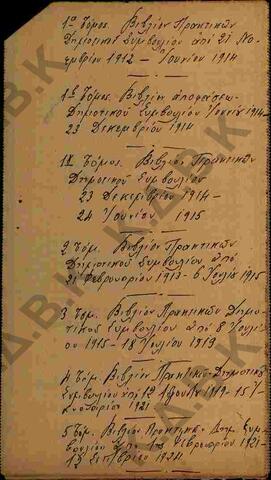 1ος Τόμος. Βιβλίον Πρακτικών
Δημοτικού Συμβουλίου από 21 Νο-
εμβρίου 1912 – Ιουνίου 1914
Τόμος. Βιβλίον αποφάσεων
Δημοτικού Συμβουλίου Ιουνίου 1914 –
23 Δεκεμβρίου 1914
Τόμος. Βιβλίον Πρακτικών
Δημοτικού Συμβουλίου
23 Δεκεμβρίου 1914 –
24 Ιουνίου 1915
2 Τόμ. Βιβλίον Πρακτικών
Δημοτικού Συμβουλίου από
21 Φεβρουαρίου 1913 – 6 Ιουλίου 1915
3 Τομ. Βιβλίον Πρακτικών Δημο-
τικού Συμβουλίου από 8 Ιουλί-
ου 1915 – 18 Ιουλίου 1919
4 Τόμ. Βιβλίον Πρακτικών Δημοτικού
Συμβουλίου από 12 1919 – 15
1921
5 Τομ. Βιβλίον Πρακτικ. Δημ. Συμ-
βουλίου από Φεβρουαρίου 1921 –
Σεπτεμβρίου